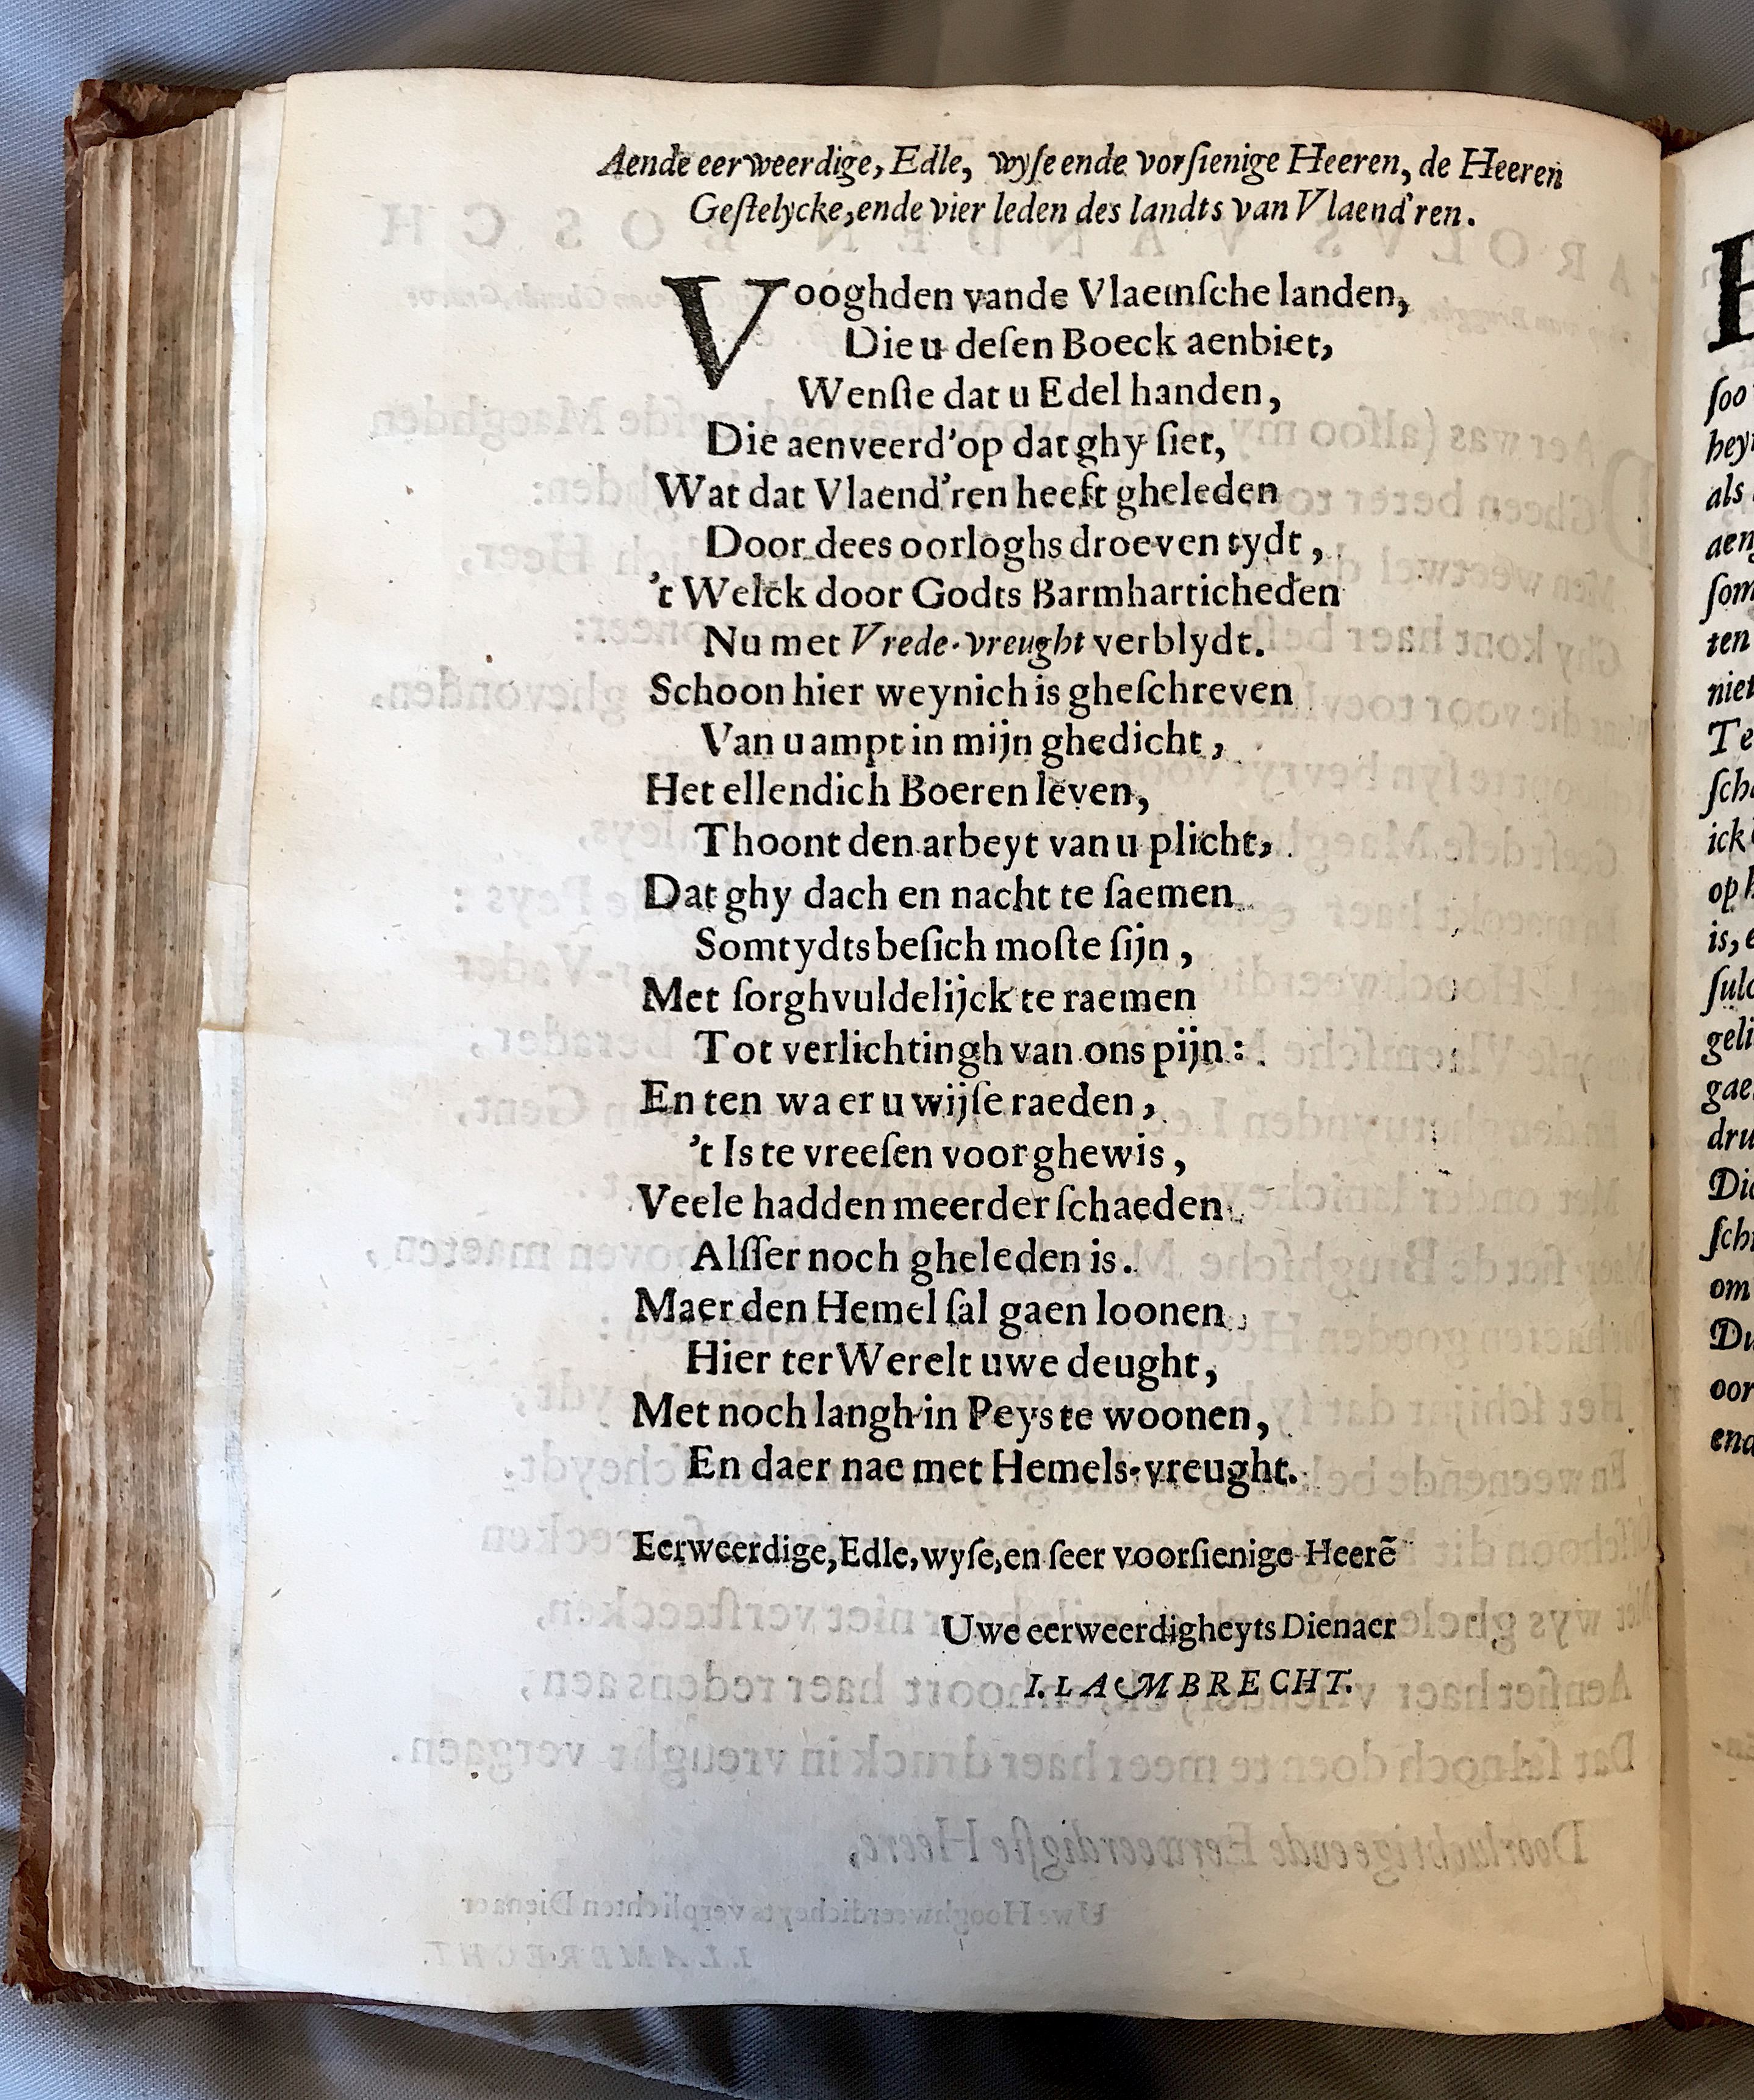 Aende eerweerdige, Edle, wyſe ende vorſienige Heeren, de Heeren
Geſtelycke, ende vier leden des landts van Vlaend'ren.
Vooghden vande Vlaemſche landen,
Die u deſen Boeck aenbiet,
Wenſte dat u Edel handen,
Die aenveerd' op dat ghy ſiet,
Wat dat Vlaend'ren heeft gheleden
Door dees oorloghs droeven tydt,
't Welck door Godts Barmharticheden
Nu met Vrede-vreught verblydt.
Schoon hier weynich is gheſchreven
Van u ampt in mijn ghedicht,
Het ellendich Boeren leven,
Thoont den arbeyt van u plicht,
Dat ghy dach en nacht te ſaemen
Somtydts beſich moſte ſijn,
Met ſorghvuldelijck te raemen
Tot verlichtingh van ons pijn:
En ten waer u wijſe raeden,
't Is te vreeſen voor ghewis,
Veele hadden meerder ſchaeden
Alſſer noch gheleden is.
Maer den Hemel ſal gaen loonen,
Hier ter Werelt uwe deught,
Met noch langh in Peys te woonen,
En daer nae met Hemels-vreught.
Eerweerdige, Edle, wyſe, en ſeer voorſienige Heerẽ
Uwe eerweerdigheyts Dienaer
I. LAMBRECHT.